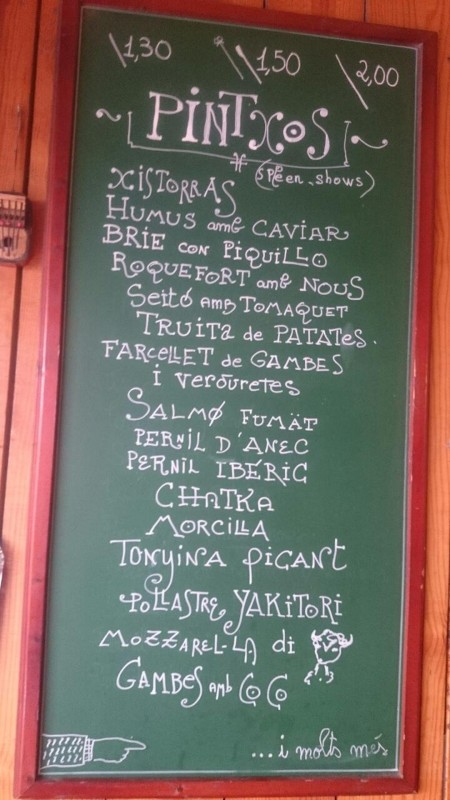 1,30 1,50 2,00
PINTXOS
(SPEEN-SHOWS)
XISTORRAS
HUMUS amb CAVIAR
BRIE con PIQUILLO
ROQUEFORT amb NOUS
SEITÓ AMB TOMAQUET
TRUITA de PATATES.
FARCELLET de GAMBES
i verduretes
SALMØ FUMÄT
PERNIL D'ANEC
PERNIL IBÉRIC
CHATKA
MORCILLA
TONYINA PICANT
POLLASTRE YAKITORI
MOZZAREL·LA di
GAMBES amb COCO
...i molts més